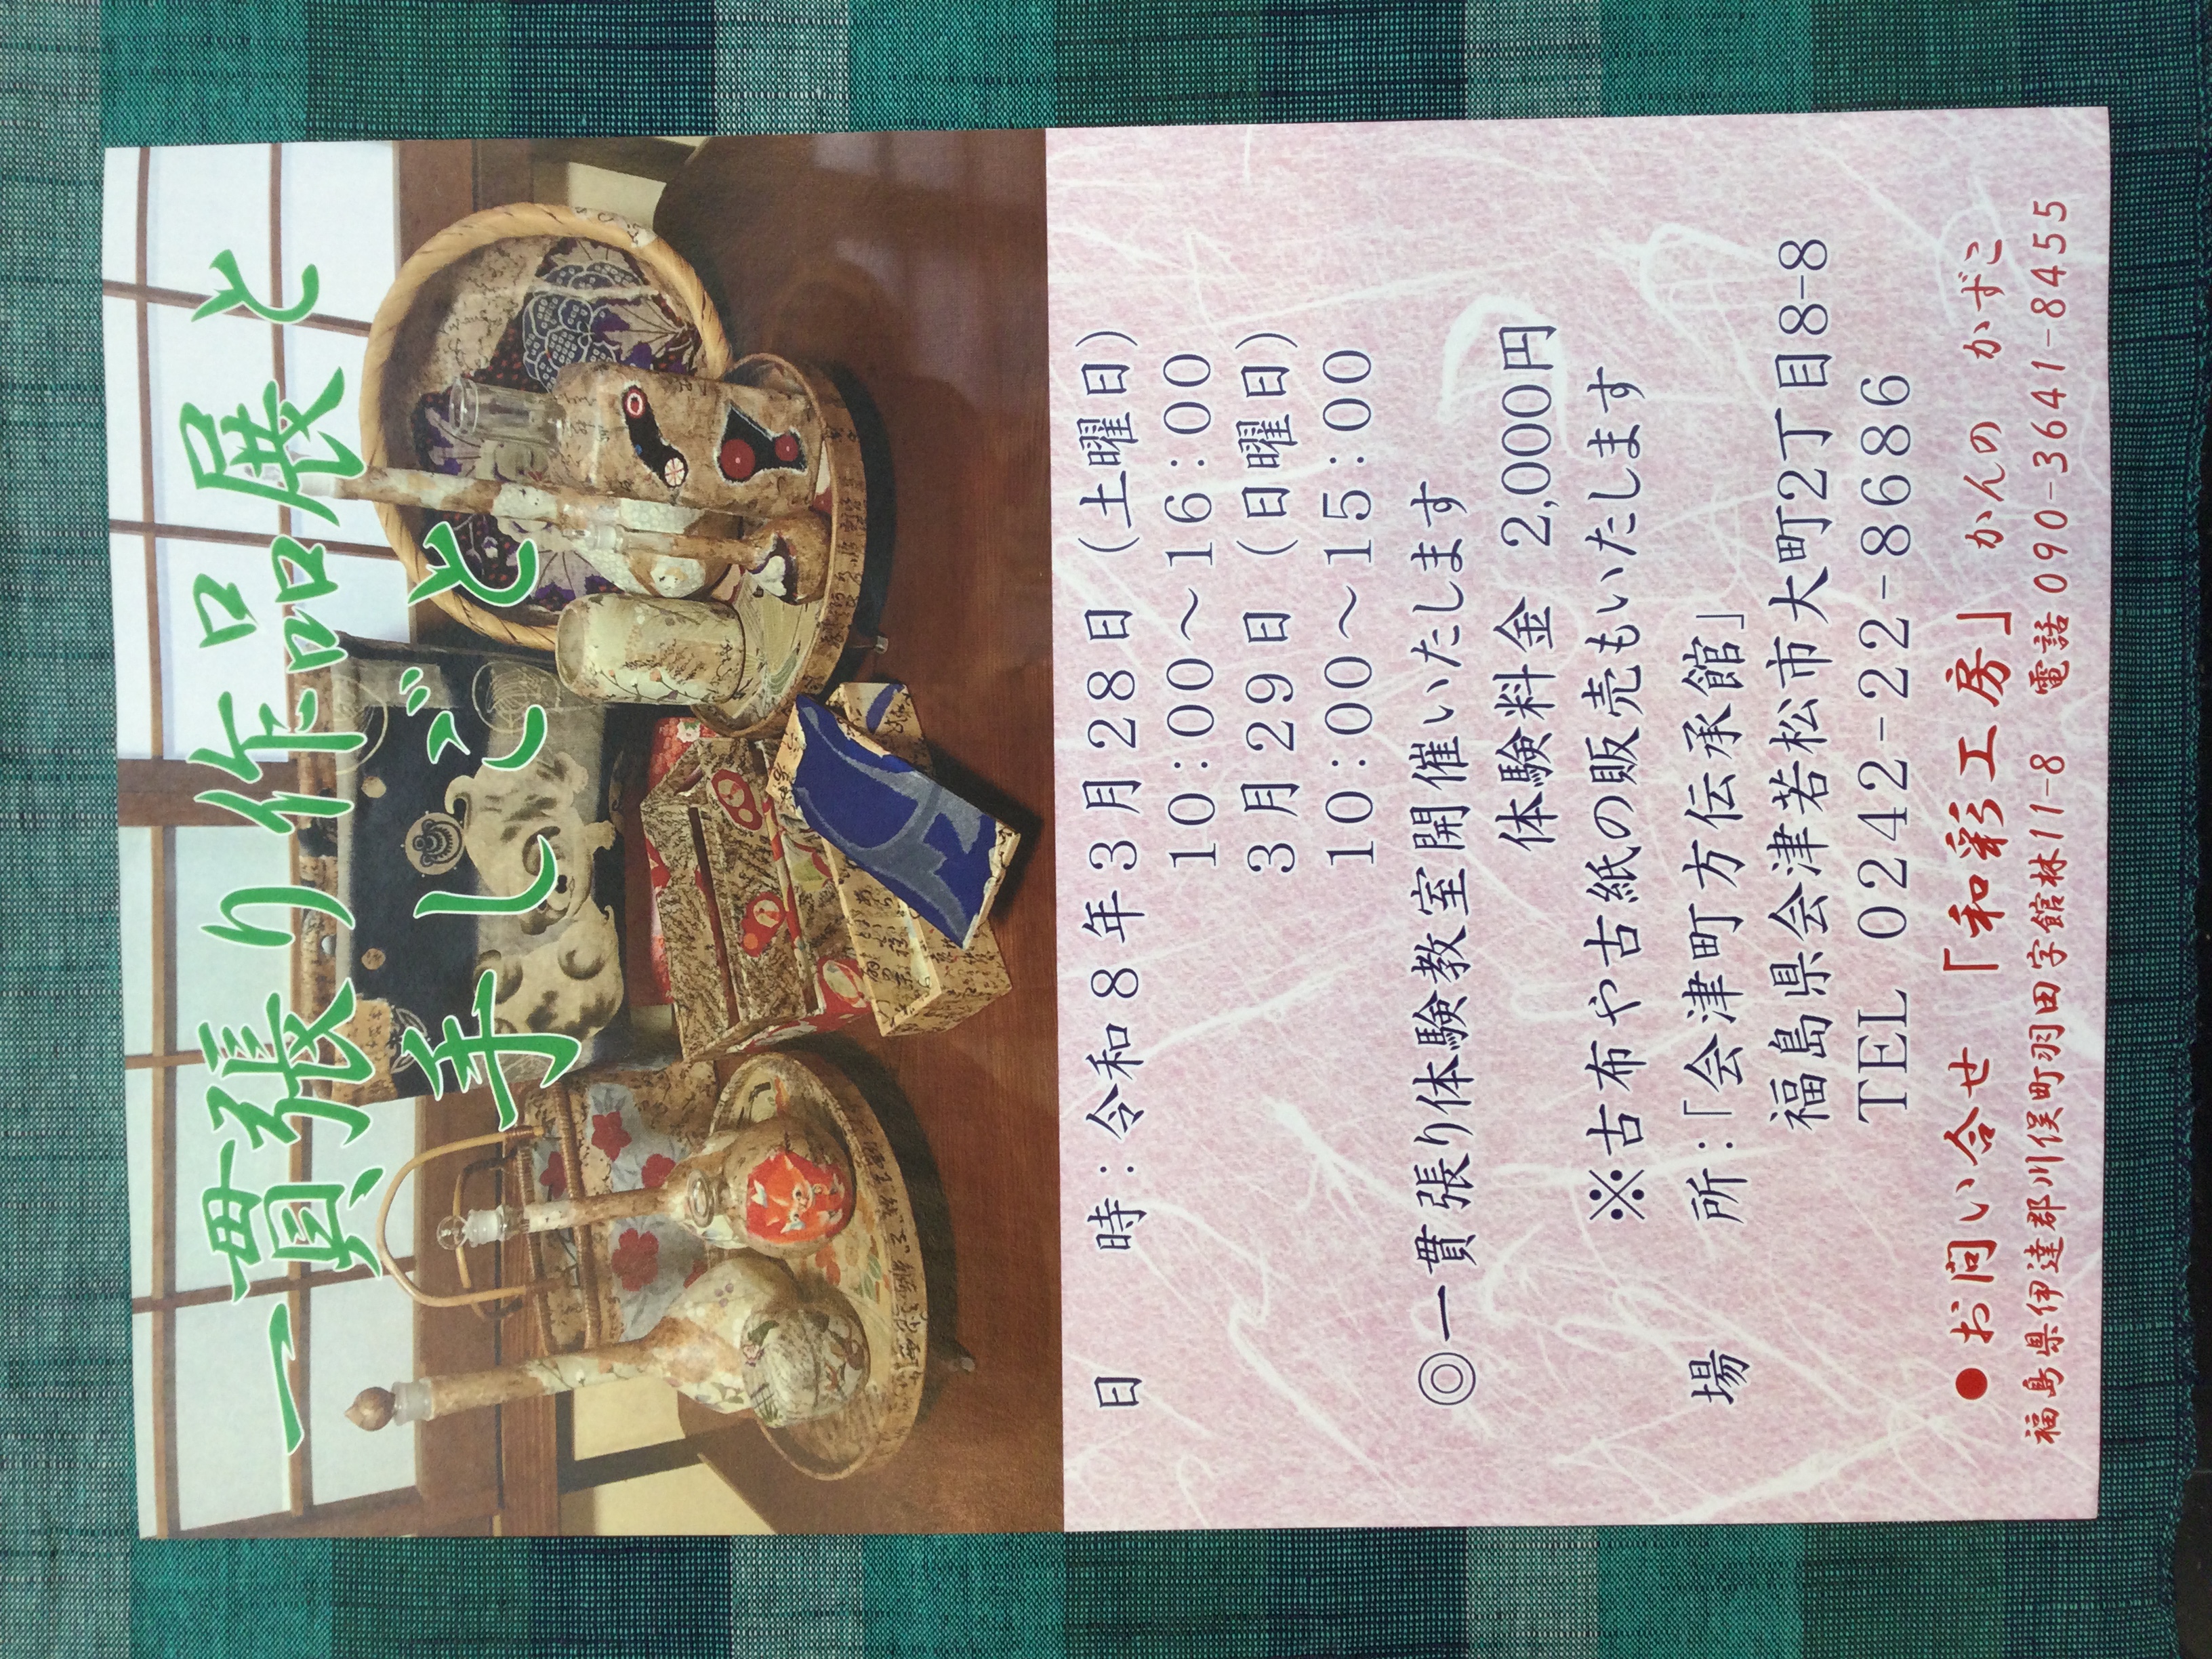 一貫張り作品展と
手しごと
日　時：令和８年３月28日（土曜日）
10:00～16:00
３月29日（日曜日）
10:00～15:00
◎一貫張り体験教室開催いたします
体験料金 2,000円
※古布や古紙の販売もいたします
場　所：「会津町方伝承館」
福島県会津若松市大町2丁目8-8
TEL 0242-22-8686
●お問い合せ「和彩工房」かんの かずこ
福島県伊達郡川俣町羽田字館林11-8 電話090-3641-8455